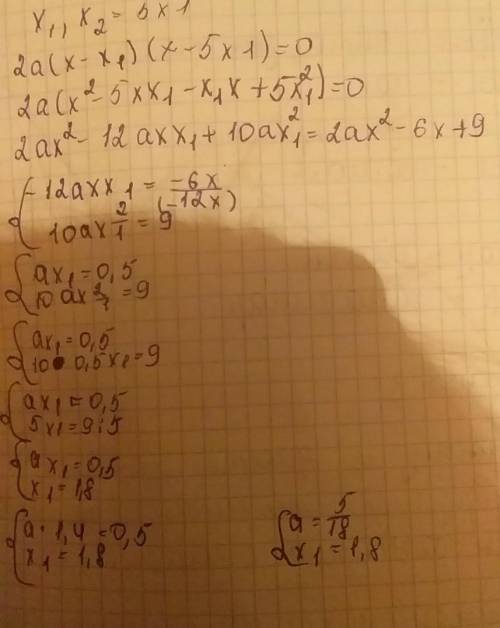 x₁, x₂ = 5x1
2a(x-x₁)(x-5x1)=0
2a(x²-5xx₁-x₁x+5x₁²)=0
2ax²-12axx₁+10ax₁²=2ax²-6x+9
{-12axx1 = -6x/(-12x)
10ax₁²=9
{ax₁=0,5
10ax₁²=9
{ax₁=0,5
10·0,5x₁=9
{ax₁=0,5
5x₁=9:5
{ax₁=0,5
x₁=1,8
{a·1,4=0,5
x₁=1,8
{a=5/18
x₁=1,8